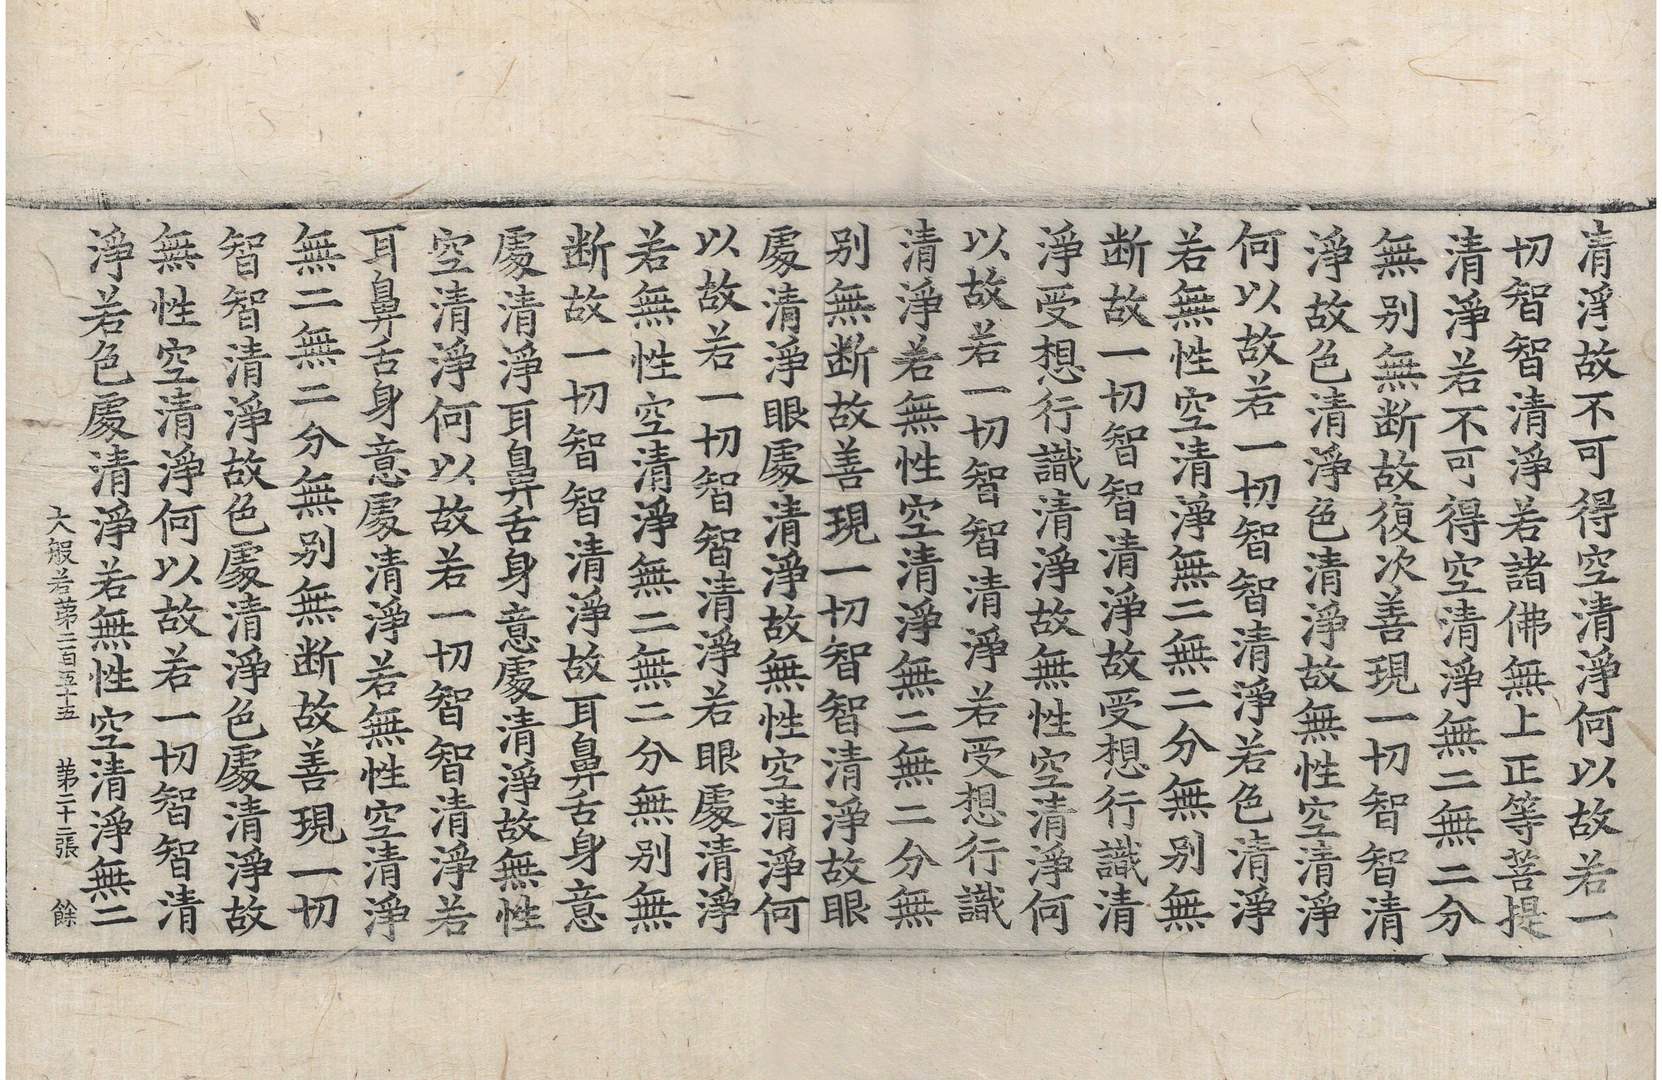 清淨故不可得空清淨何以故若一
切智智清淨若諸佛無上正等菩提
清淨若不可得空清淨無二無二分
無別無断故復次善現一切智智清
淨故色清淨色清淨故無性空清淨
何以故若一切智智清淨若色清淨
若無性空清淨無二無二分無別無
断故一切智智清淨故受想行識清
淨受想行識清淨故無性空清淨何
以故若一切智智清淨若受想行識
清淨若無性空清淨無二無二分無
別無断故善現一切智智清淨故眼
處清淨眼處清淨故無性空清淨何
以故若一切智智清淨若眼處清淨
若無性空清淨無二無二分無別無
断故一切智智清淨故耳鼻舌身意
處清淨耳鼻舌身意處清淨故無性
空清淨何以故若一切智智清淨若
耳鼻舌身意處清淨若無性空清淨
無二無二分無別無断故善現一切
智智清淨故色處清淨色處清淨故
無性空清淨何以故若一切智智清
淨若色處清淨若無性空清淨無二
大般若第二百五十五 第二十二張 餘